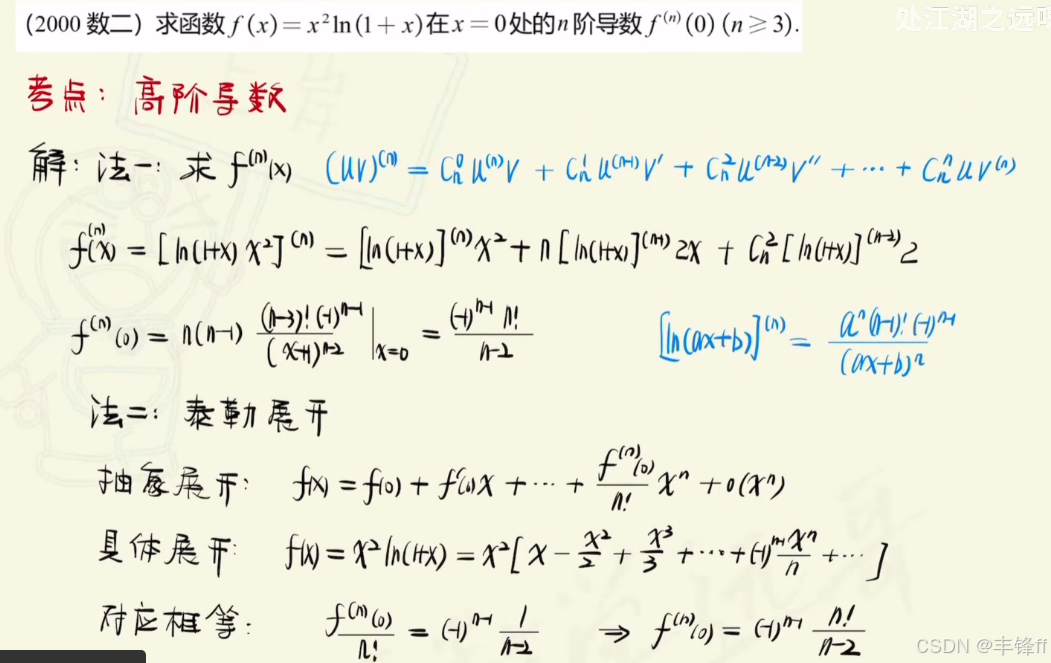 (2000 数二) 求函数 f(x)=x²ln(1+x)在x=0处的n阶导数 f⁽ⁿ⁾(0) (n≥3).
处江湖之远
考点: 高阶导数
解: 法一: 求 f⁽ⁿ⁾(x) (uv)⁽ⁿ⁾ = Cₙ⁰u⁽ⁿ⁾v + Cₙ¹u⁽ⁿ⁻¹⁾v' + Cₙ²u⁽ⁿ⁻²⁾v'' + ⋯ + Cₙⁿuv⁽ⁿ⁾
f⁽ⁿ⁾(x) = [ln(1+x) x²]⁽ⁿ⁾ = [ln(1+x)]⁽ⁿ⁾x² + n[ln(1+x)]⁽ⁿ⁻¹⁾2x + Cₙ²[ln(1+x)]⁽ⁿ⁻²⁾2
f⁽ⁿ⁾(0) = n(n-1) (n-3)!(-1)ⁿ⁻¹/(x+1)ⁿ⁻² |x=0 = (-1)ⁿ⁻¹ n!/(n-2) [ln(ax+b)]⁽ⁿ⁾ = aⁿ(n-1)!(-1)ⁿ⁻¹/(ax+b)ⁿ
法二: 泰勒展开
抽象展开: f(x) = f(0) + f'(0)x + ⋯ + f⁽ⁿ⁾(0)/n! xⁿ + o(xⁿ)
具体展开: f(x) = x²ln(1+x) = x²[x - x²/2 + x³/3 + ⋯ + (-1)ⁿ⁻¹ xⁿ/n + ⋯]
对应相等: f⁽ⁿ⁾(0)/n! = (-1)ⁿ⁻¹ 1/(n-2) ⇒ f⁽ⁿ⁾(0) = (-1)ⁿ⁻¹ n!/(n-2)
CSDN @丰锋ff